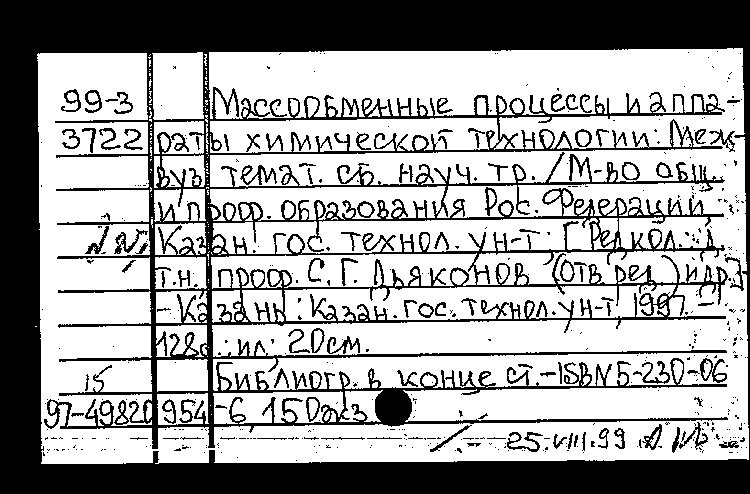 99-3 Массообменные процессы и аппа-
3722 раты химической технологии: Меж-
вуз. темат. сб. науч. тр. / М-во общ.
и проф. образования Рос. Федерации,
Казан. гос. технол. ун-т; [Редкол.: д.
т.н., проф. С. Г. Дьяконов (отв. ред.) и др.]
- Казань: Казан. гос. технол. ун-т, 1997. -
128с.: ил; 20см.
15 Библиогр. в конце ст. - ISBN 5-230-06
97-49820 954-6, 150экз
25.VIII.99